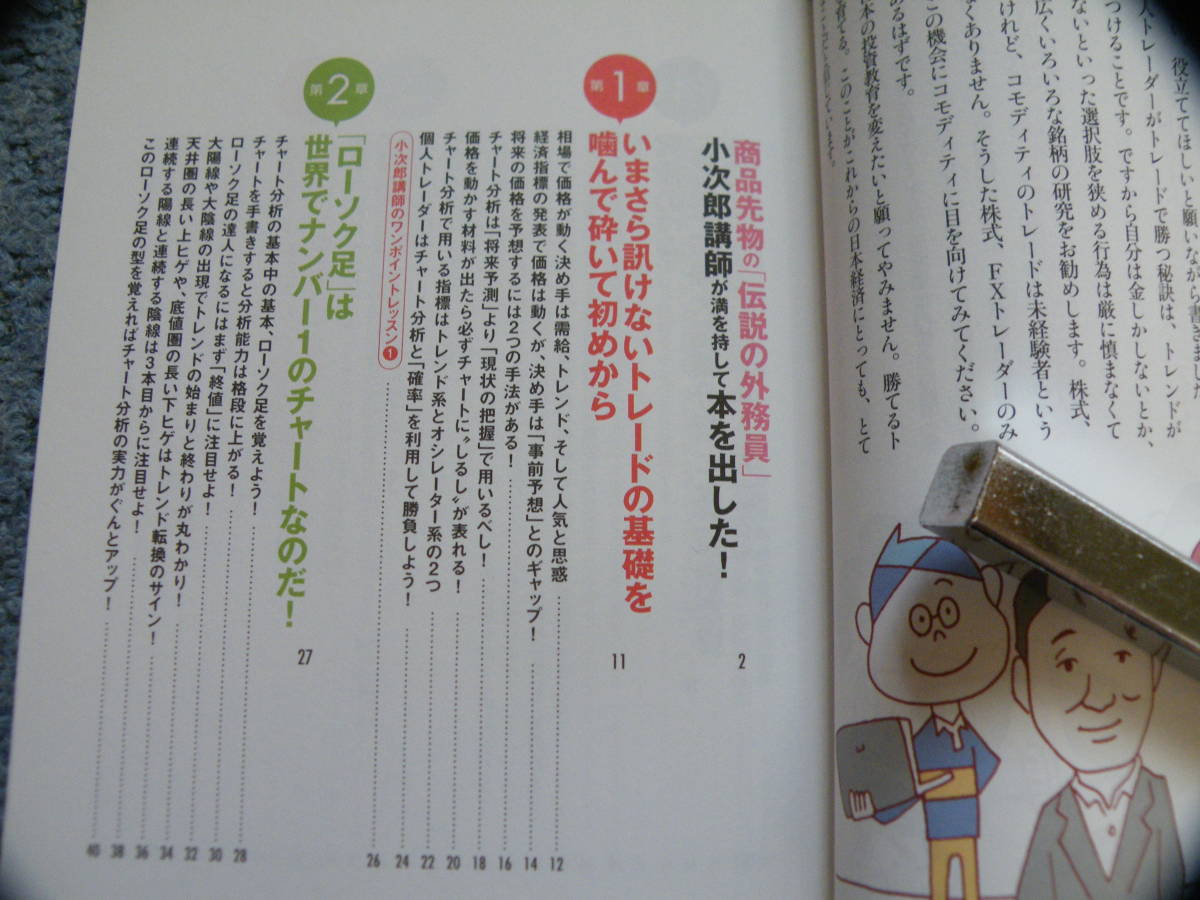 役立ててほしいと願いながら書きました。
人トレーダーがトレードで勝つ秘訣は、トレンドが
つけることです。ですから自分は金しかしないとか、
ないといった選択肢を狭める行為は厳に慎まなくて
広くいろいろな銘柄の研究をお勧めします。株式、
けれど、コモディティのトレードは未経験者という
なくありません。そうした株式、FXトレーダーのみ
この機会にコモディティに目を向けてみてください。
あるはずです。
本の投資教育を変えたいと願ってやみません。勝てるト
育てる。このことがこれからの日本経済にとっても、とて
商品先物の「伝説の外務員」
小次郎講師が満を持して本を出した！ 2
第1章
いまさら訊けないトレードの基礎を
噛んで砕いて初めから 11
相場で価格が動く決め手は需給、トレンド、そして人気と思惑 12
経済指標の発表で価格は動くが、決め手は「事前予想」とのギャップ！ 14
将来の価格を予想するには2つの手法がある！ 16
チャート分析は「将来予測」より「現状の把握」で用いるべし！ 18
価格を動かす材料が出たら必ずチャートに〝しるし〟が表れる！ 20
チャート分析で用いる指標はトレンド系とオシレーター系の2つ 22
個人トレーダーはチャート分析と「確率」を利用して勝負しよう！ 24
小次郎講師のワンポイントレッスン❶ 26
第2章
「ローソク足」は
世界でナンバー1のチャートなのだ！ 27
チャート分析の基本中の基本、ローソク足を覚えよう！ 28
チャートを手書きすると分析能力は格段に上がる！ 30
ローソク足の達人になるにはまず「終値」に注目せよ！ 32
大陽線や大陰線の出現でトレンドの始まりと終わりが丸わかり！ 34
天井圏の長い上ヒゲや、底値圏の長い下ヒゲはトレンド転換のサイン！ 36
連続する陽線と連続する陰線は3本目からに注目せよ！ 38
このローソク足の型を覚えればチャート分析の実力がぐんとアップ！ 40